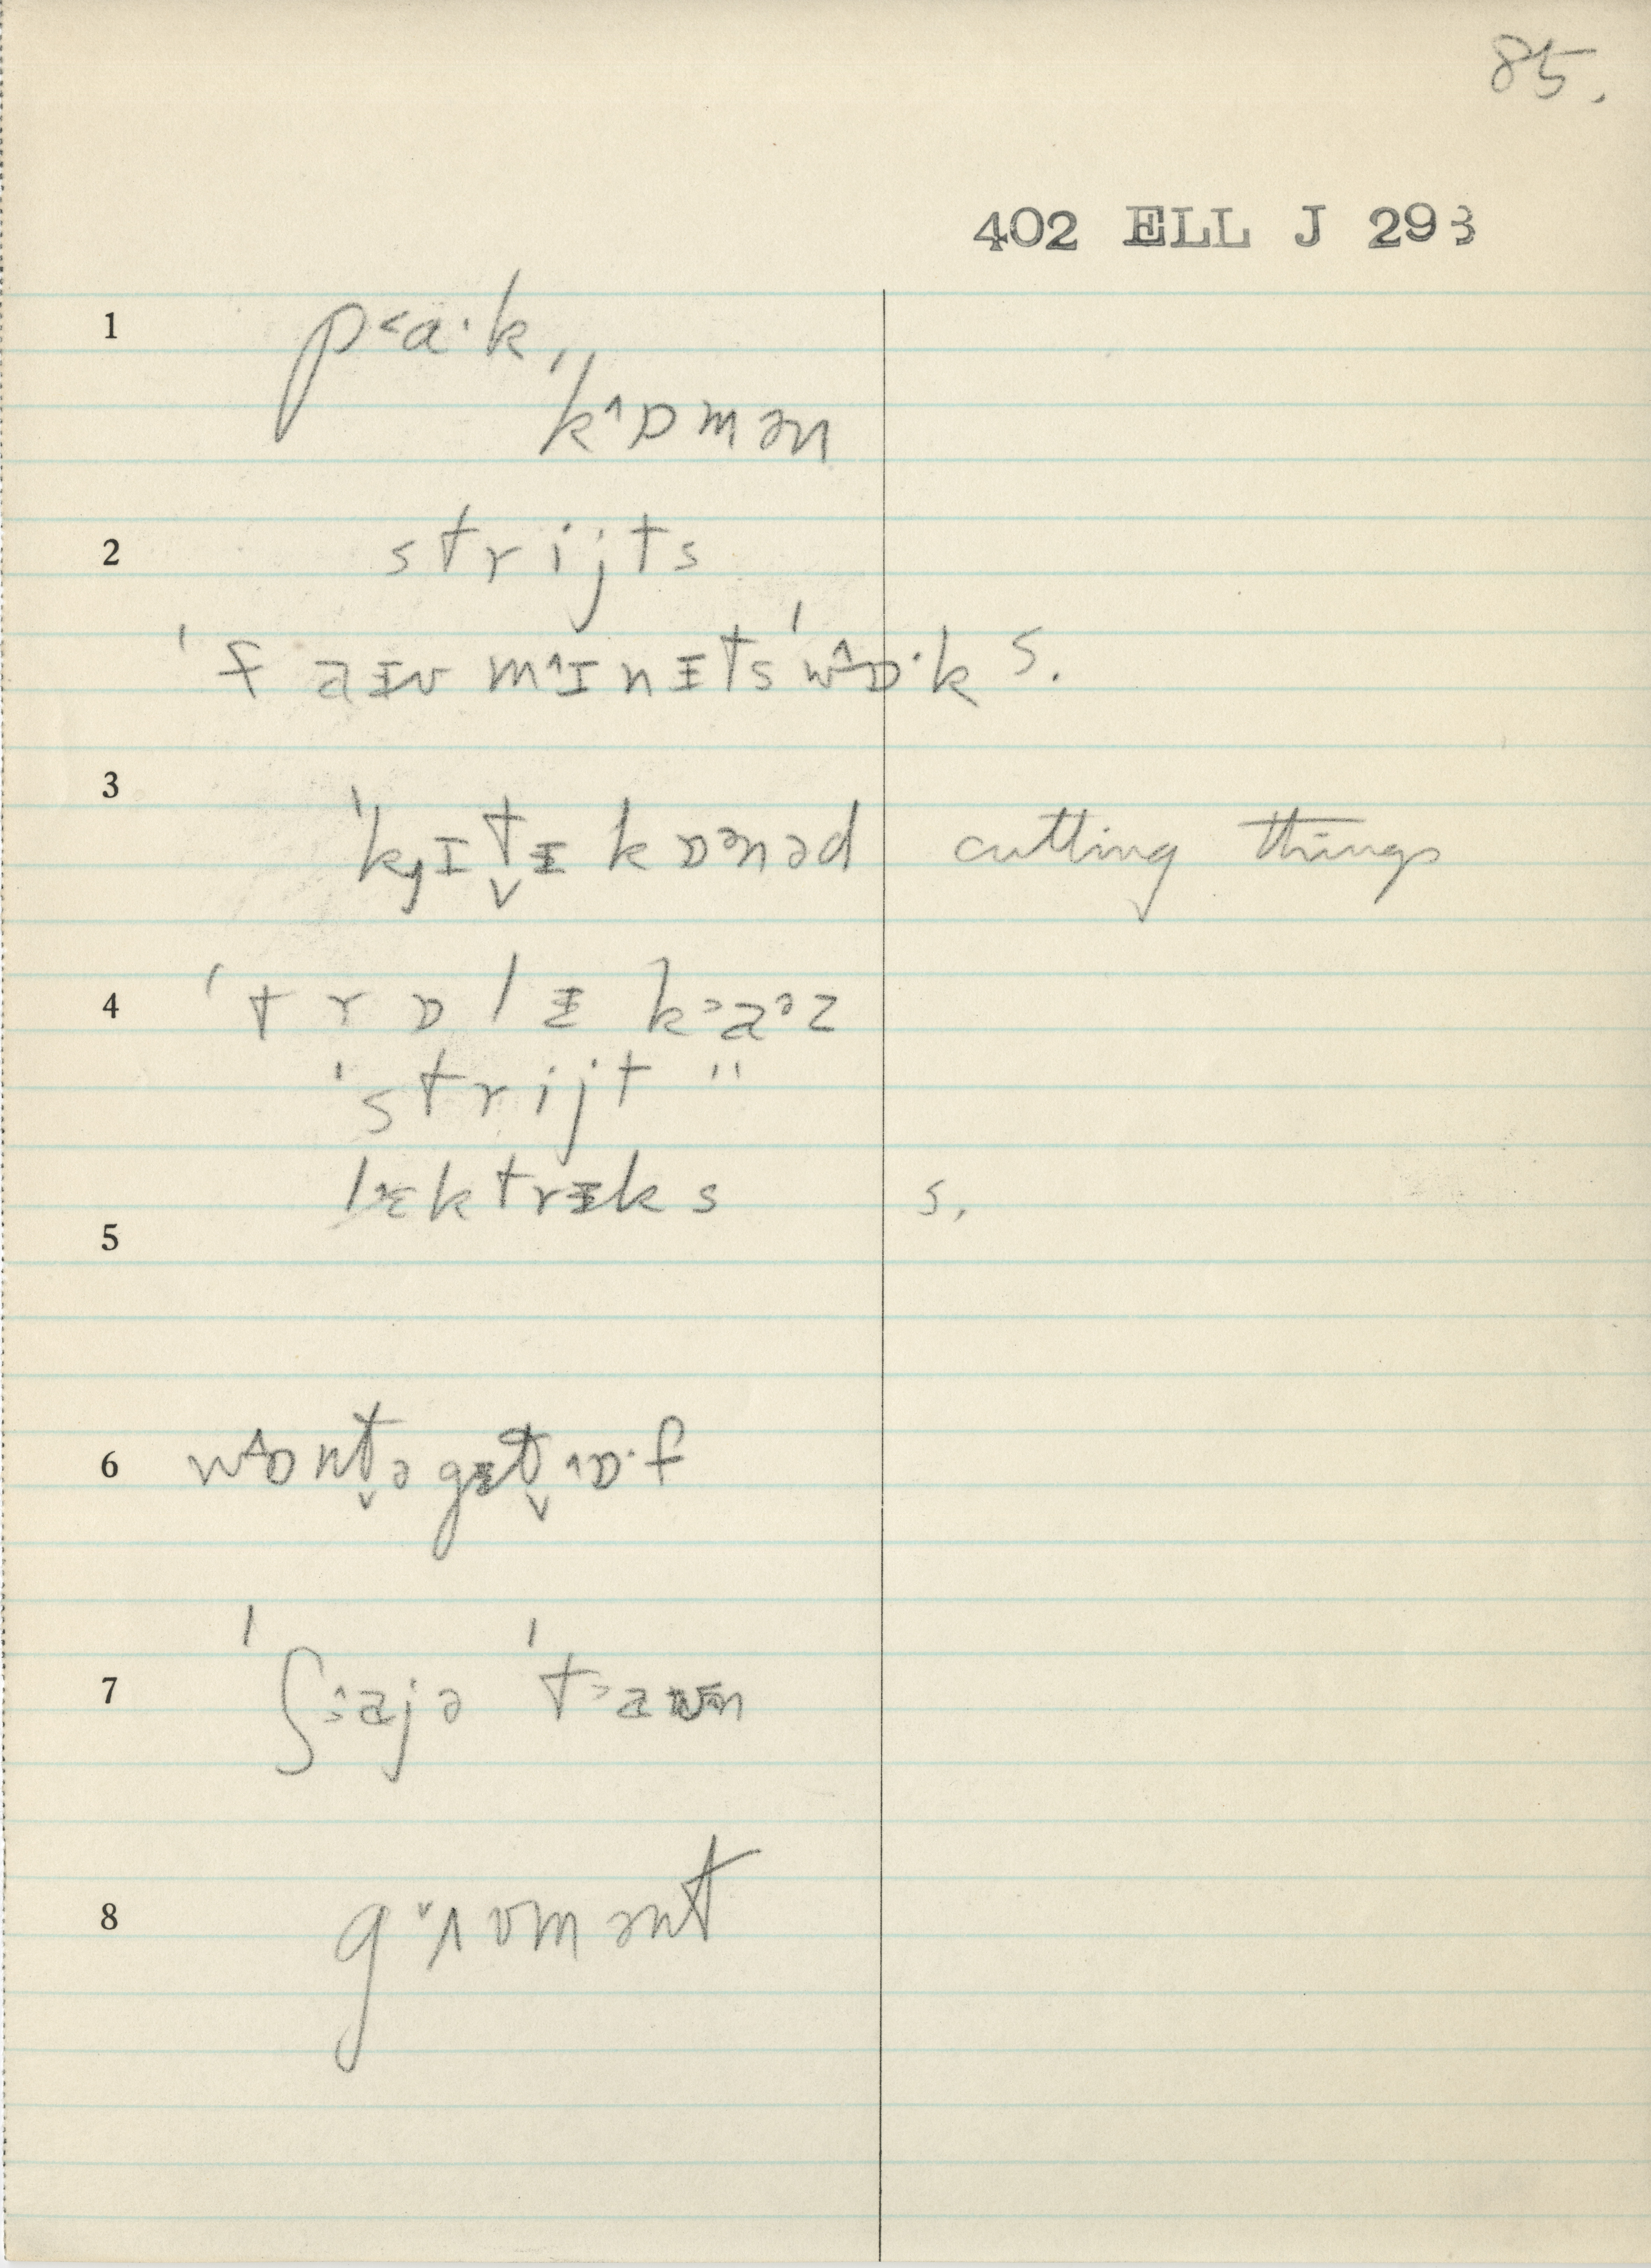 85.
402 ELL J 293
1 p˂a·k,
ˈk˄ɒmən
2 strijts
ˈfaɪvm˄ɪnɪtsˈw˄ɒ·ks.
3 ˈkɟɪt̬ɪkɒᵊnəd cutting things
4 ˈtrɒlɪ k˃aᵊz
ˈstrijt "
lɛktrɪks s.
5
6 w˄ɒnt̬əgɪt̬˄ɒ·f
7 ˈʃ˃ajə ˈt˃aʊn
8 g˅ʌvmənt